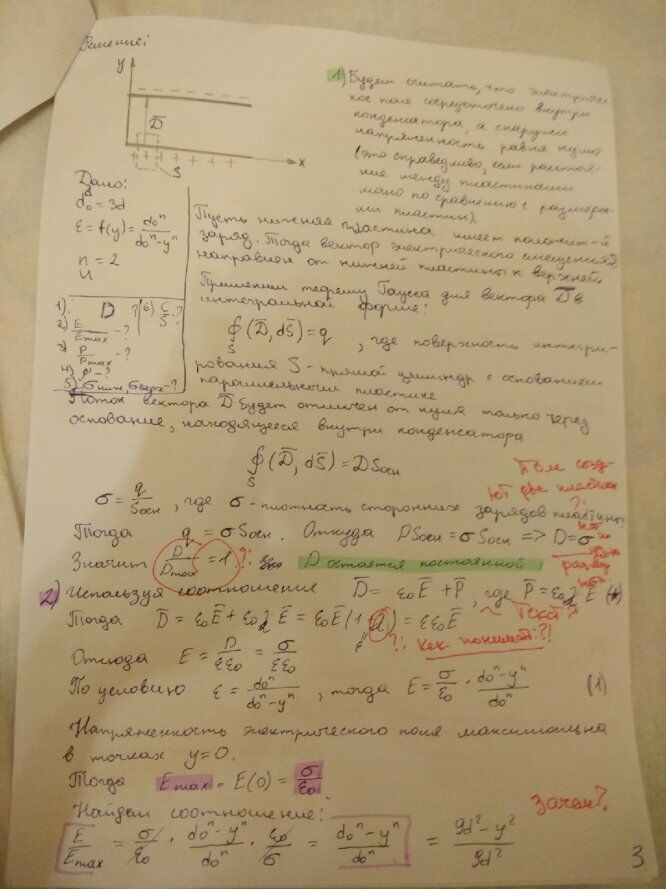 Решение:
y
D̅
x
S
Дано:
d₀ = 3d
ε = f(y) = d₀ⁿ/(d₀ⁿ-yⁿ)
n = 2
U
1) D - ?
6) C/S - ?
2) E/Emax - ?
3) P/Pmax - ?
4) ρ' - ?
5) σниж, σверх - ?
1) Будем считать, что электричес-
кое поле сосредоточено внутри
конденсатора, а снаружи
напряженность равна нулю
(это справедливо, если расстоя-
ние между пластинами
мало по сравнению с размера-
ми пластин).
Пусть нижняя пластина имеет положит-й
заряд. Тогда вектор электрического смещения
направлен от нижней пластины к верхней.
Применим теорему Гаусса для вектора D̅ в
интегральной форме:
∮S (D̅, dS̅) = q , где поверхность интегри-
рования S - прямой цилиндр с основанием
параллельным пластине
Поток вектора D̅ будет отличен от нуля только через
основание, находящееся внутри конденсатора
∮S (D̅, dS̅) = DSосн
Поле созда-
ют две пластины
?
σ = q/Sосн , где σ - плотность сторонних зарядов пластины
Тогда q = σSосн. Откуда DSосн = σSосн => D = σ
Значит D/Dmax = 1 ?. D остается постоянной
2) Используя соотношение D̅ = ε₀E̅ + P̅, где P̅ = ε₀ E̅ (*)
Текст?
Тогда D̅ = ε₀E̅ + ε₀ E̅ = ε₀E̅(1+ ) = εε₀E̅
ε
?: Как понимать?!
Откуда E = D/εε₀ = σ/εε₀
По условию ε = d₀ⁿ/(d₀ⁿ-yⁿ), тогда E = σ/ε₀ · (d₀ⁿ-yⁿ)/d₀ⁿ (1)
Напряженность электрического поля максимальна
в точках y=0.
Тогда Emax = E(0) = σ/ε₀
Найдем соотношение:
Зачем?
E/Emax = σ/ε₀ · (d₀ⁿ-yⁿ)/d₀ⁿ · ε₀/σ = (d₀ⁿ-yⁿ)/d₀ⁿ = (9d²-y²)/9d²
3